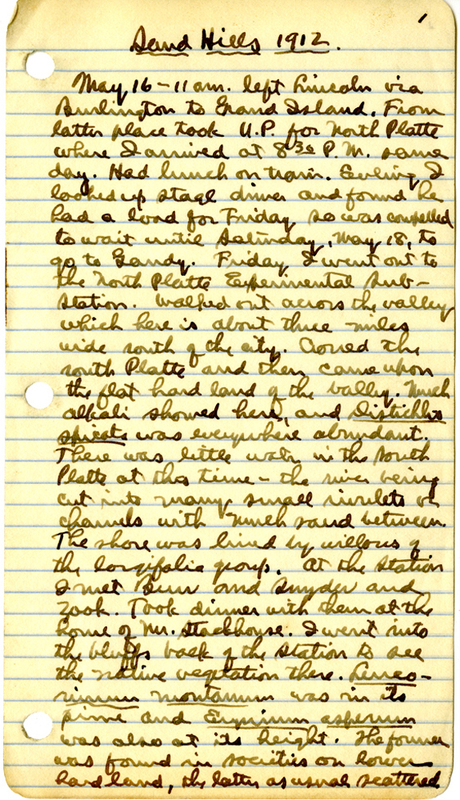 1
Sand Hills 1912.
May, 16 - 11 am. left Lincoln via
Burlington to Grand Island. From
latter place took U.P. for North Platte
where I arrived at 8 30 P.M. same
day. Had lunch on train. Evening I
looked up stage driver and found he
had a load for Friday so was compelled
to wait until Saturday, May 18, to
go to Gandy. Friday I went out to
the North Platte Experimental Sub-
Station. Walked out across the valley
which here is about three miles
wide south of the city. Crossed the
South Platte and then came upon
the flat hard land of the valley. Much
alkali showed here, and Distichlis
spicata was everywhere abundant.
There was little water in the South
Platte at this time - the river being
cut into many small rivulets or
channels with much sand between.
The shore was lined by willows of
the longifolia group. At the Station
I met Burr and Snyder and
Zook. Took dinner with them at the
home of Mr. Stackhouse. I went into
the bluffs back of the Station to see
the native vegetation there. Leuco-
crinum montanum was in its
prime and Erysimum asperum
was also at its height. The former
was found in societies on lower
hard land, the latter as usual scattered